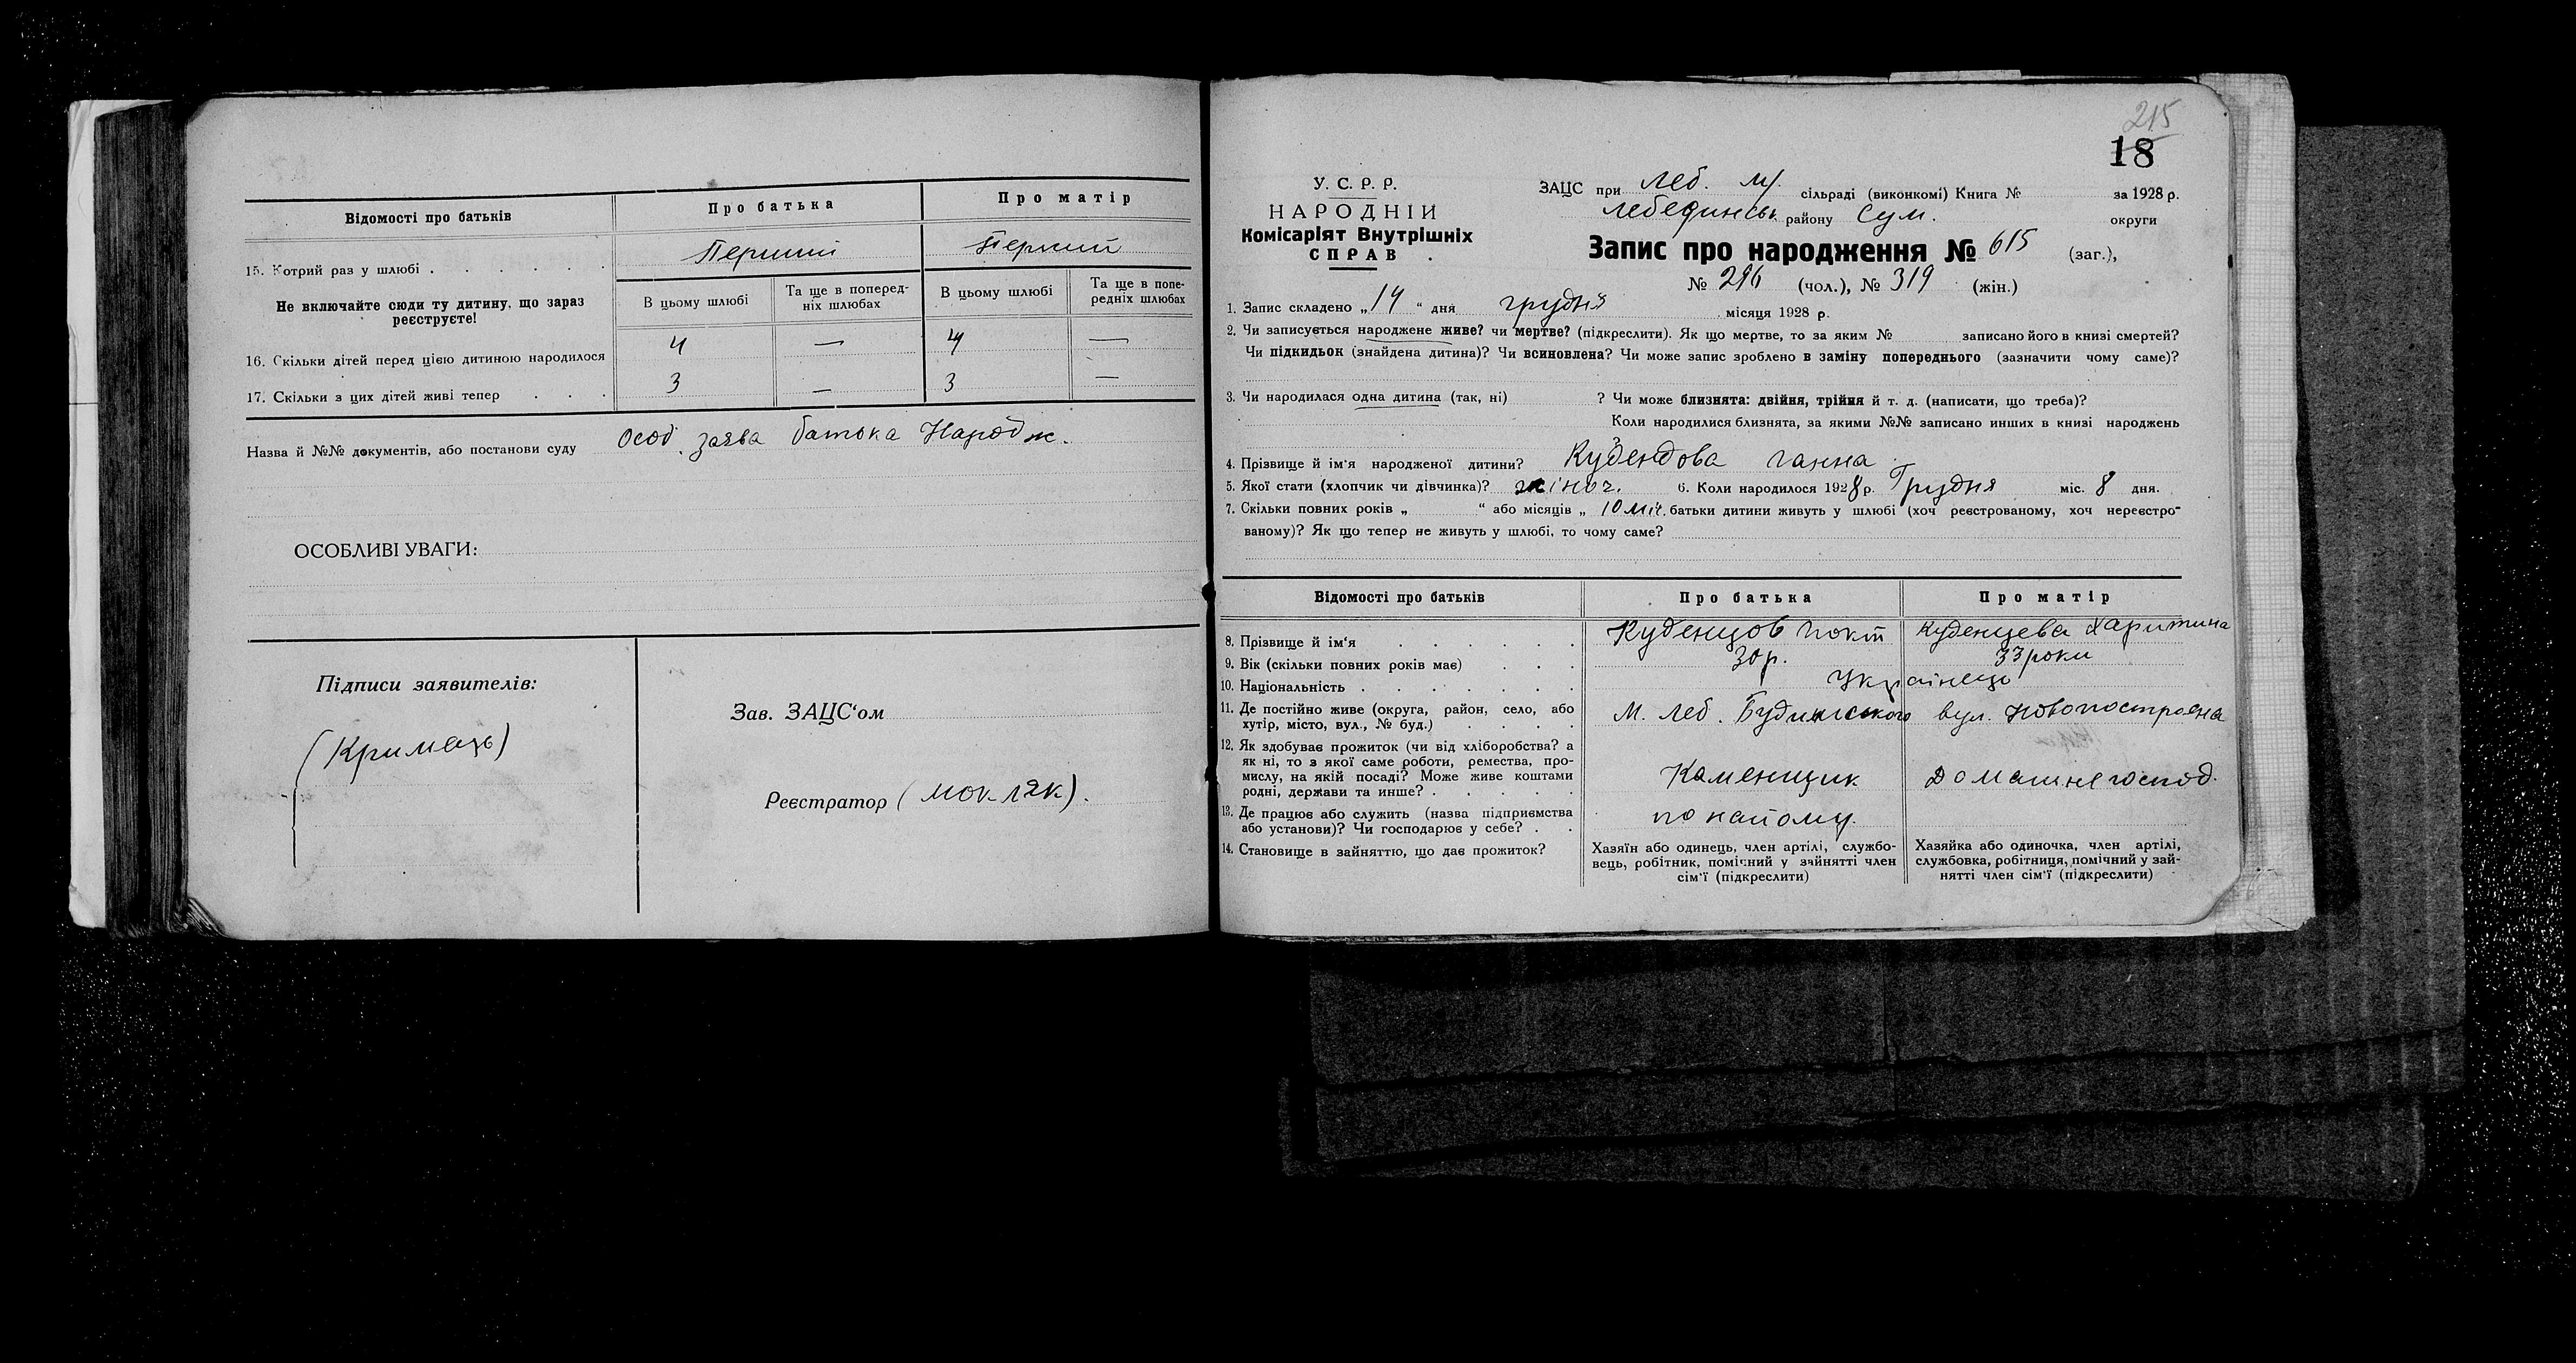 Відомості про батьків
Про батька
Про матір
15. Котрий раз у шлюбі
Перший
Перший
Не включайте сюди ту дитину, що зараз реєструєте!
В цьому шлюбі
Та ще в попередніх шлюбах
В цьому шлюбі
Та ще в попередніх шлюбах
16. Скільки дітей перед цією дитиною народилося
4 — 4 —
17. Скільки з цих дітей живі тепер
3 — 3 —
Назва й №№ документів, або постанови суду Особ. заява батька Народж.
ОСОБЛИВІ УВАГИ:
Підписи заявителів:
(Кримець)
Зав. ЗАЦС'ом
Реєстратор (Мокляк).
215
18
У. С. Р. Р.
НАРОДНІЙ
Комісаріят Внутрішніх
СПРАВ
ЗАЦС при Леб. м. сільраді (виконкомі) Книга № за 1928 р.
Лебединськ району Сум. округи
Запис про народження № 615 (заг.),
№ 296 (чол.), № 319 (жін.)
1. Запис складено „14“ дня грудня місяця 1928 р.
2. Чи записується народжене живе? чи мертве? (підкреслити). Як що мертве, то за яким № записано його в книзі смертей?
Чи підкидьок (знайдена дитина)? Чи всиновлена? Чи може запис зроблено в заміну попереднього (зазначити чому саме)?
3. Чи народилася одна дитина (так, ні) ? Чи може близнята: двійня, трійня й т. д. (написати, що треба)?
Коли народилися близнята, за якими №№ записано инших в книзі народжень
4. Прізвище й ім'я народженої дитини? Ганна
5. Якої стати (хлопчик чи дівчинка)? жіноч. 6. Коли народилося 1928 р. Грудня міс. 8 дня.
7. Скільки повних років „ “ або місяців „ 10 міс. батьки дитини живуть у шлюбі (хоч реєстрованому, хоч нереєстро-
ваному)? Як що тепер не живуть у шлюбі, то чому саме?
Відомості про батьків
Про батька
Про матір
8. Прізвище й ім'я
Куденцов
Куденцева Харитина
9. Вік (скільки повних років має)
30 р.
33 роки
10. Національність
Українець
11. Де постійно живе (округа, район, село, або
хутір, місто, вул., № буд.)
М. Леб. Будинського вул. Новопостроєна
12. Як здобуває прожиток (чи від хліборобства? а
як ні, то з якої саме роботи, ремества, про-
мислу, на якій посаді? Може живе коштами
родні, держави та инше?
Каменщик
Домашнє господ.
13. Де працює або служить (назва підприємства
або установи)? Чи господарює у себе?
по найому.
14. Становище в зайняттю, що дає прожиток?
Хазяїн або одинець, член артілі, службо-
вець, робітник, помічний у зайнятті член
сім'ї (підкреслити)
Хазяйка або одиночка, член артілі,
службовка, робітниця, помічний у зай-
нятті член сім'ї (підкреслити)